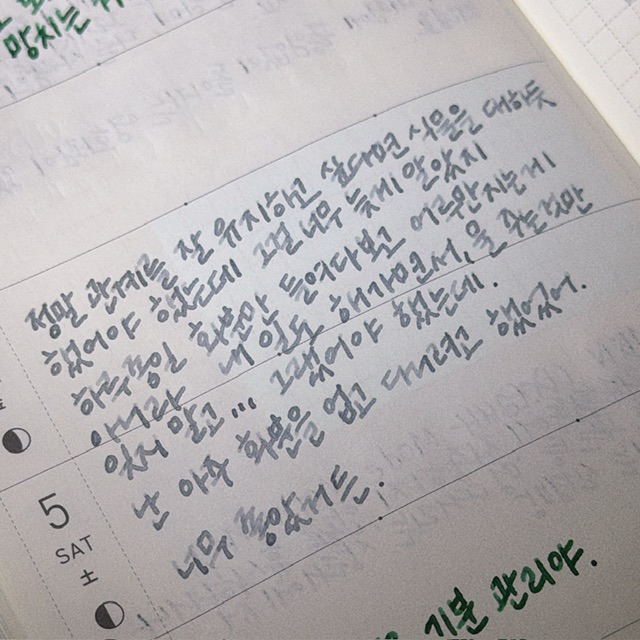 망치는
정말 관계를 잘 유지하고 싶다면 식물을 대하듯
했어야 했는데 그걸 너무 늦게 알았지
하루종일 화분만 들여다보고 어루만지는게
아니라 내 일도 해가면서, 물 주는것만
잊지 않고... 그랬어야 했는데.
난 아주 화분을 업고 다니려고 했었어.
너무 좋았거든.
5
SAT
土
기분 관리야.